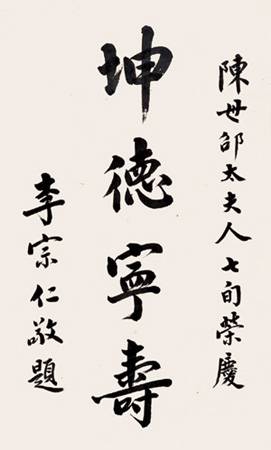 陳世邵太夫人七旬榮慶
坤德寧壽
李宗仁敬題